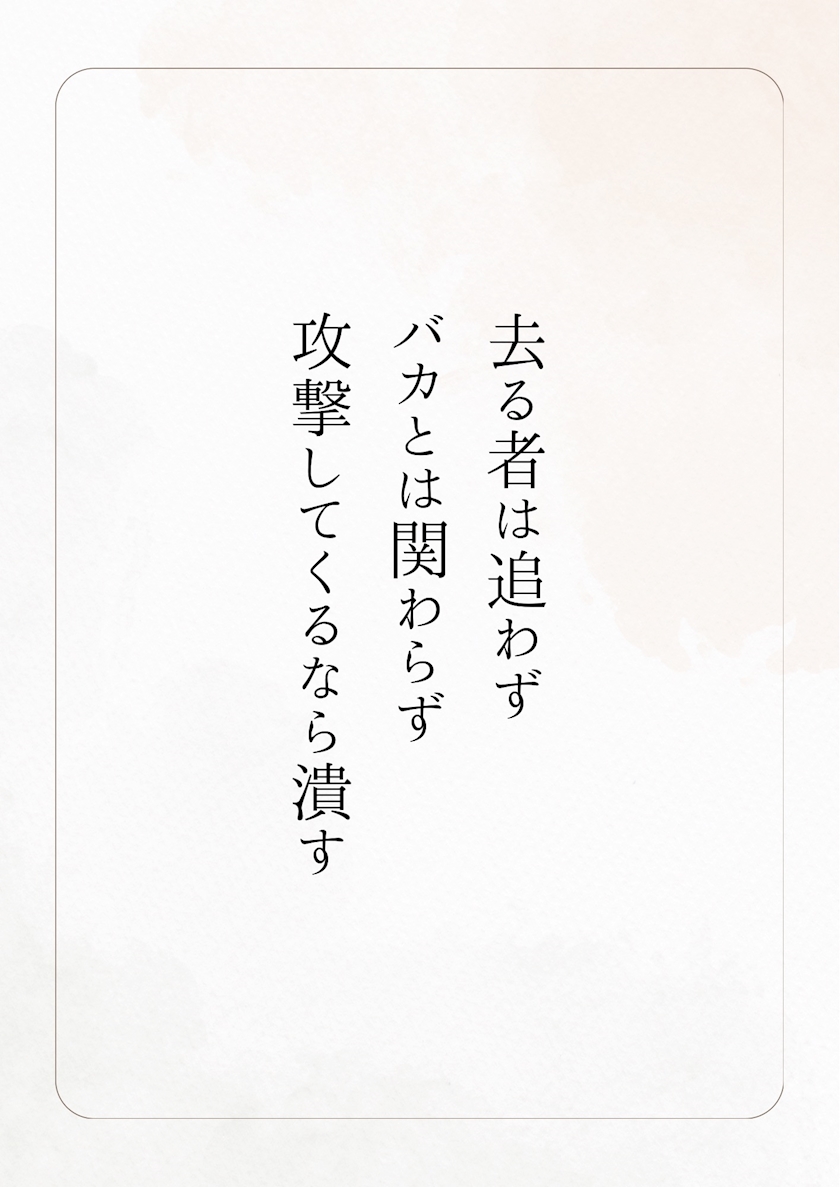 去る者は追わず
バカとは関わらず
攻撃してくるなら潰す